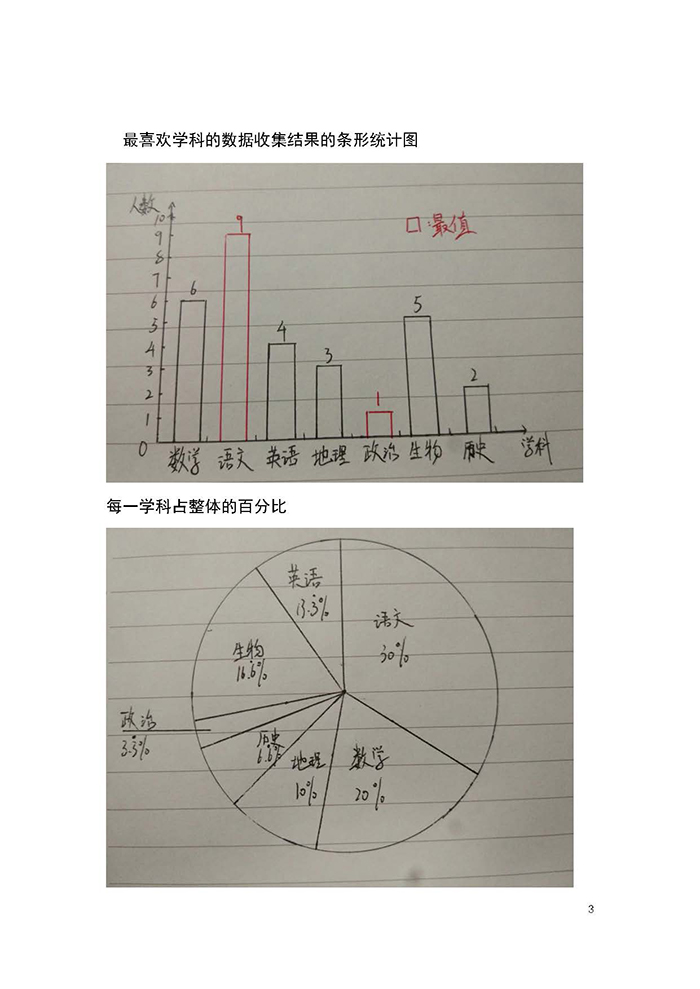 最喜欢学科的数据收集结果的条形统计图
人数
10
9
8
7
6
5
4
3
2
1
0
6
9
4
3
1
5
2
□:最值
数学 语文 英语 地理 政治 生物 历史 学科
每一学科占整体的百分比
英语
13.3̇%
语文
30%
生物
16.6̇%
政治
3.3̇%
历史
6.6̇%
地理
10%
数学
20%
3